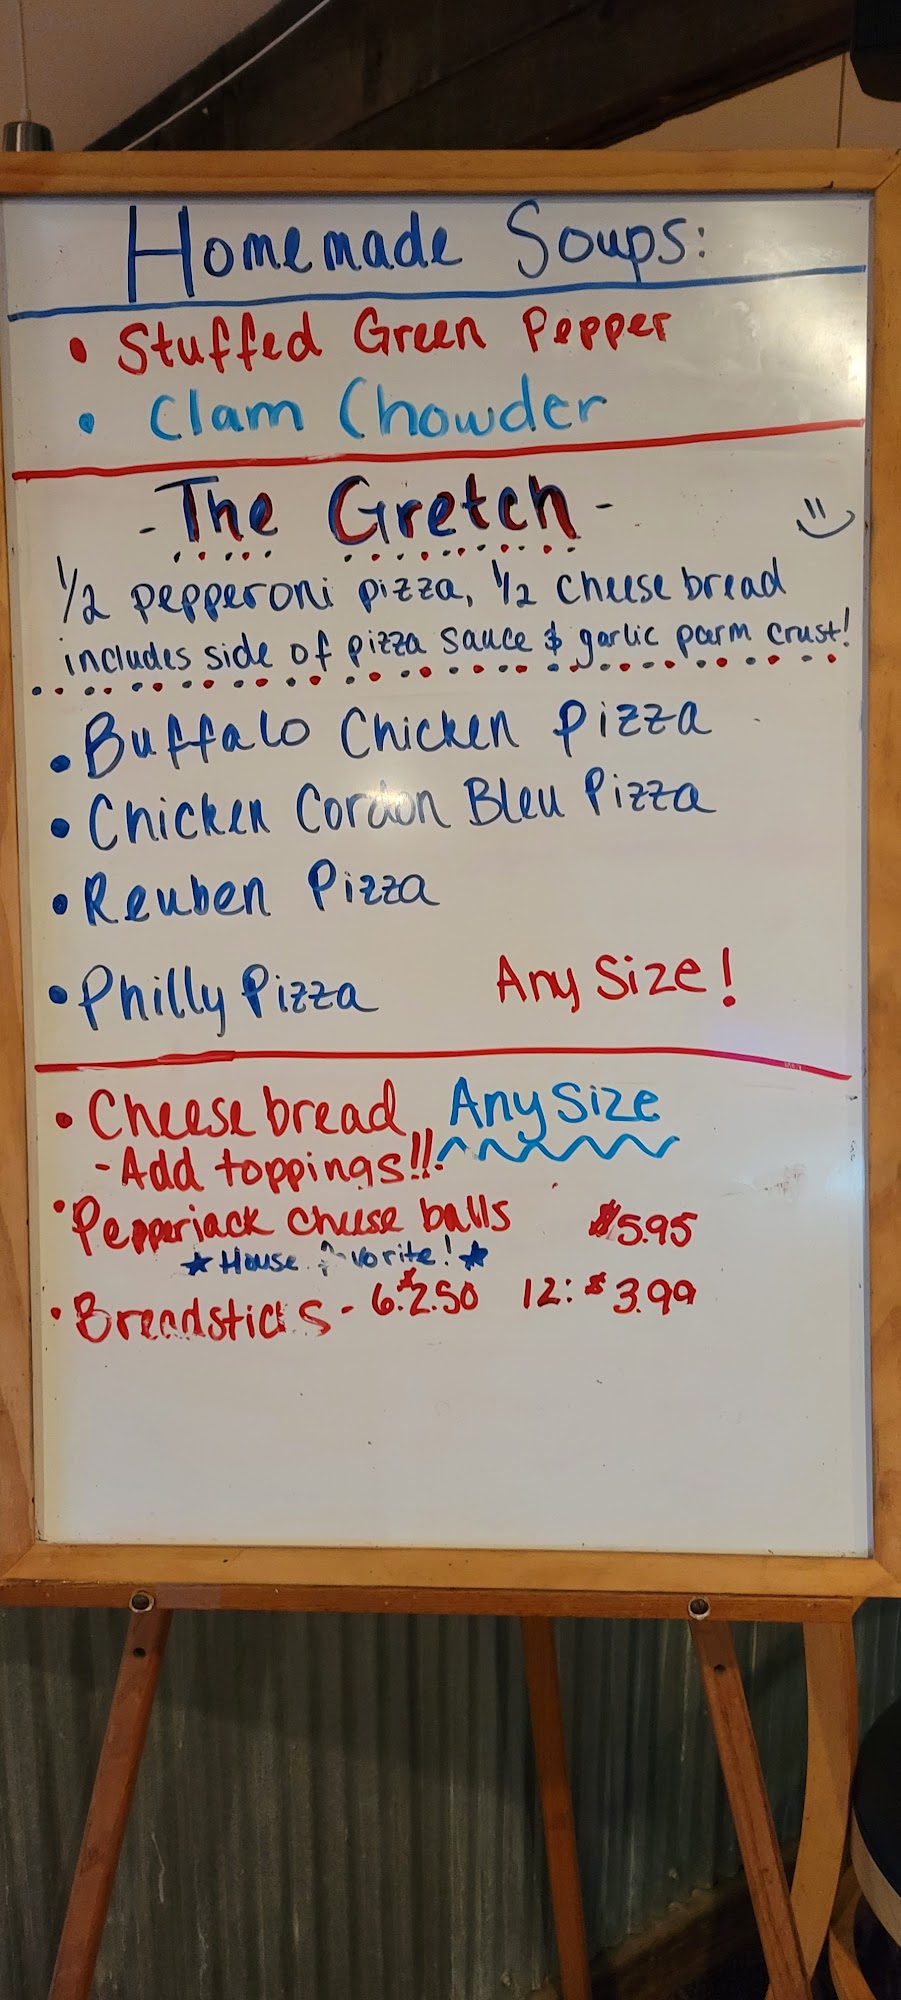 Homemade Soups:
• Stuffed Green Pepper
• Clam Chowder
- The Gretch -
1/2 pepperoni pizza, 1/2 cheese bread
includes side of pizza sauce & garlic parm crust!
• Buffalo Chicken Pizza
• Chicken Cordon Bleu Pizza
• Reuben Pizza
• Philly Pizza Any Size!
• Cheese bread Any Size
- Add toppings!!!
• Pepperjack cheese balls $5.95
★ House favorite! ★
• Breadsticks - 6: $2.50 12: $3.99